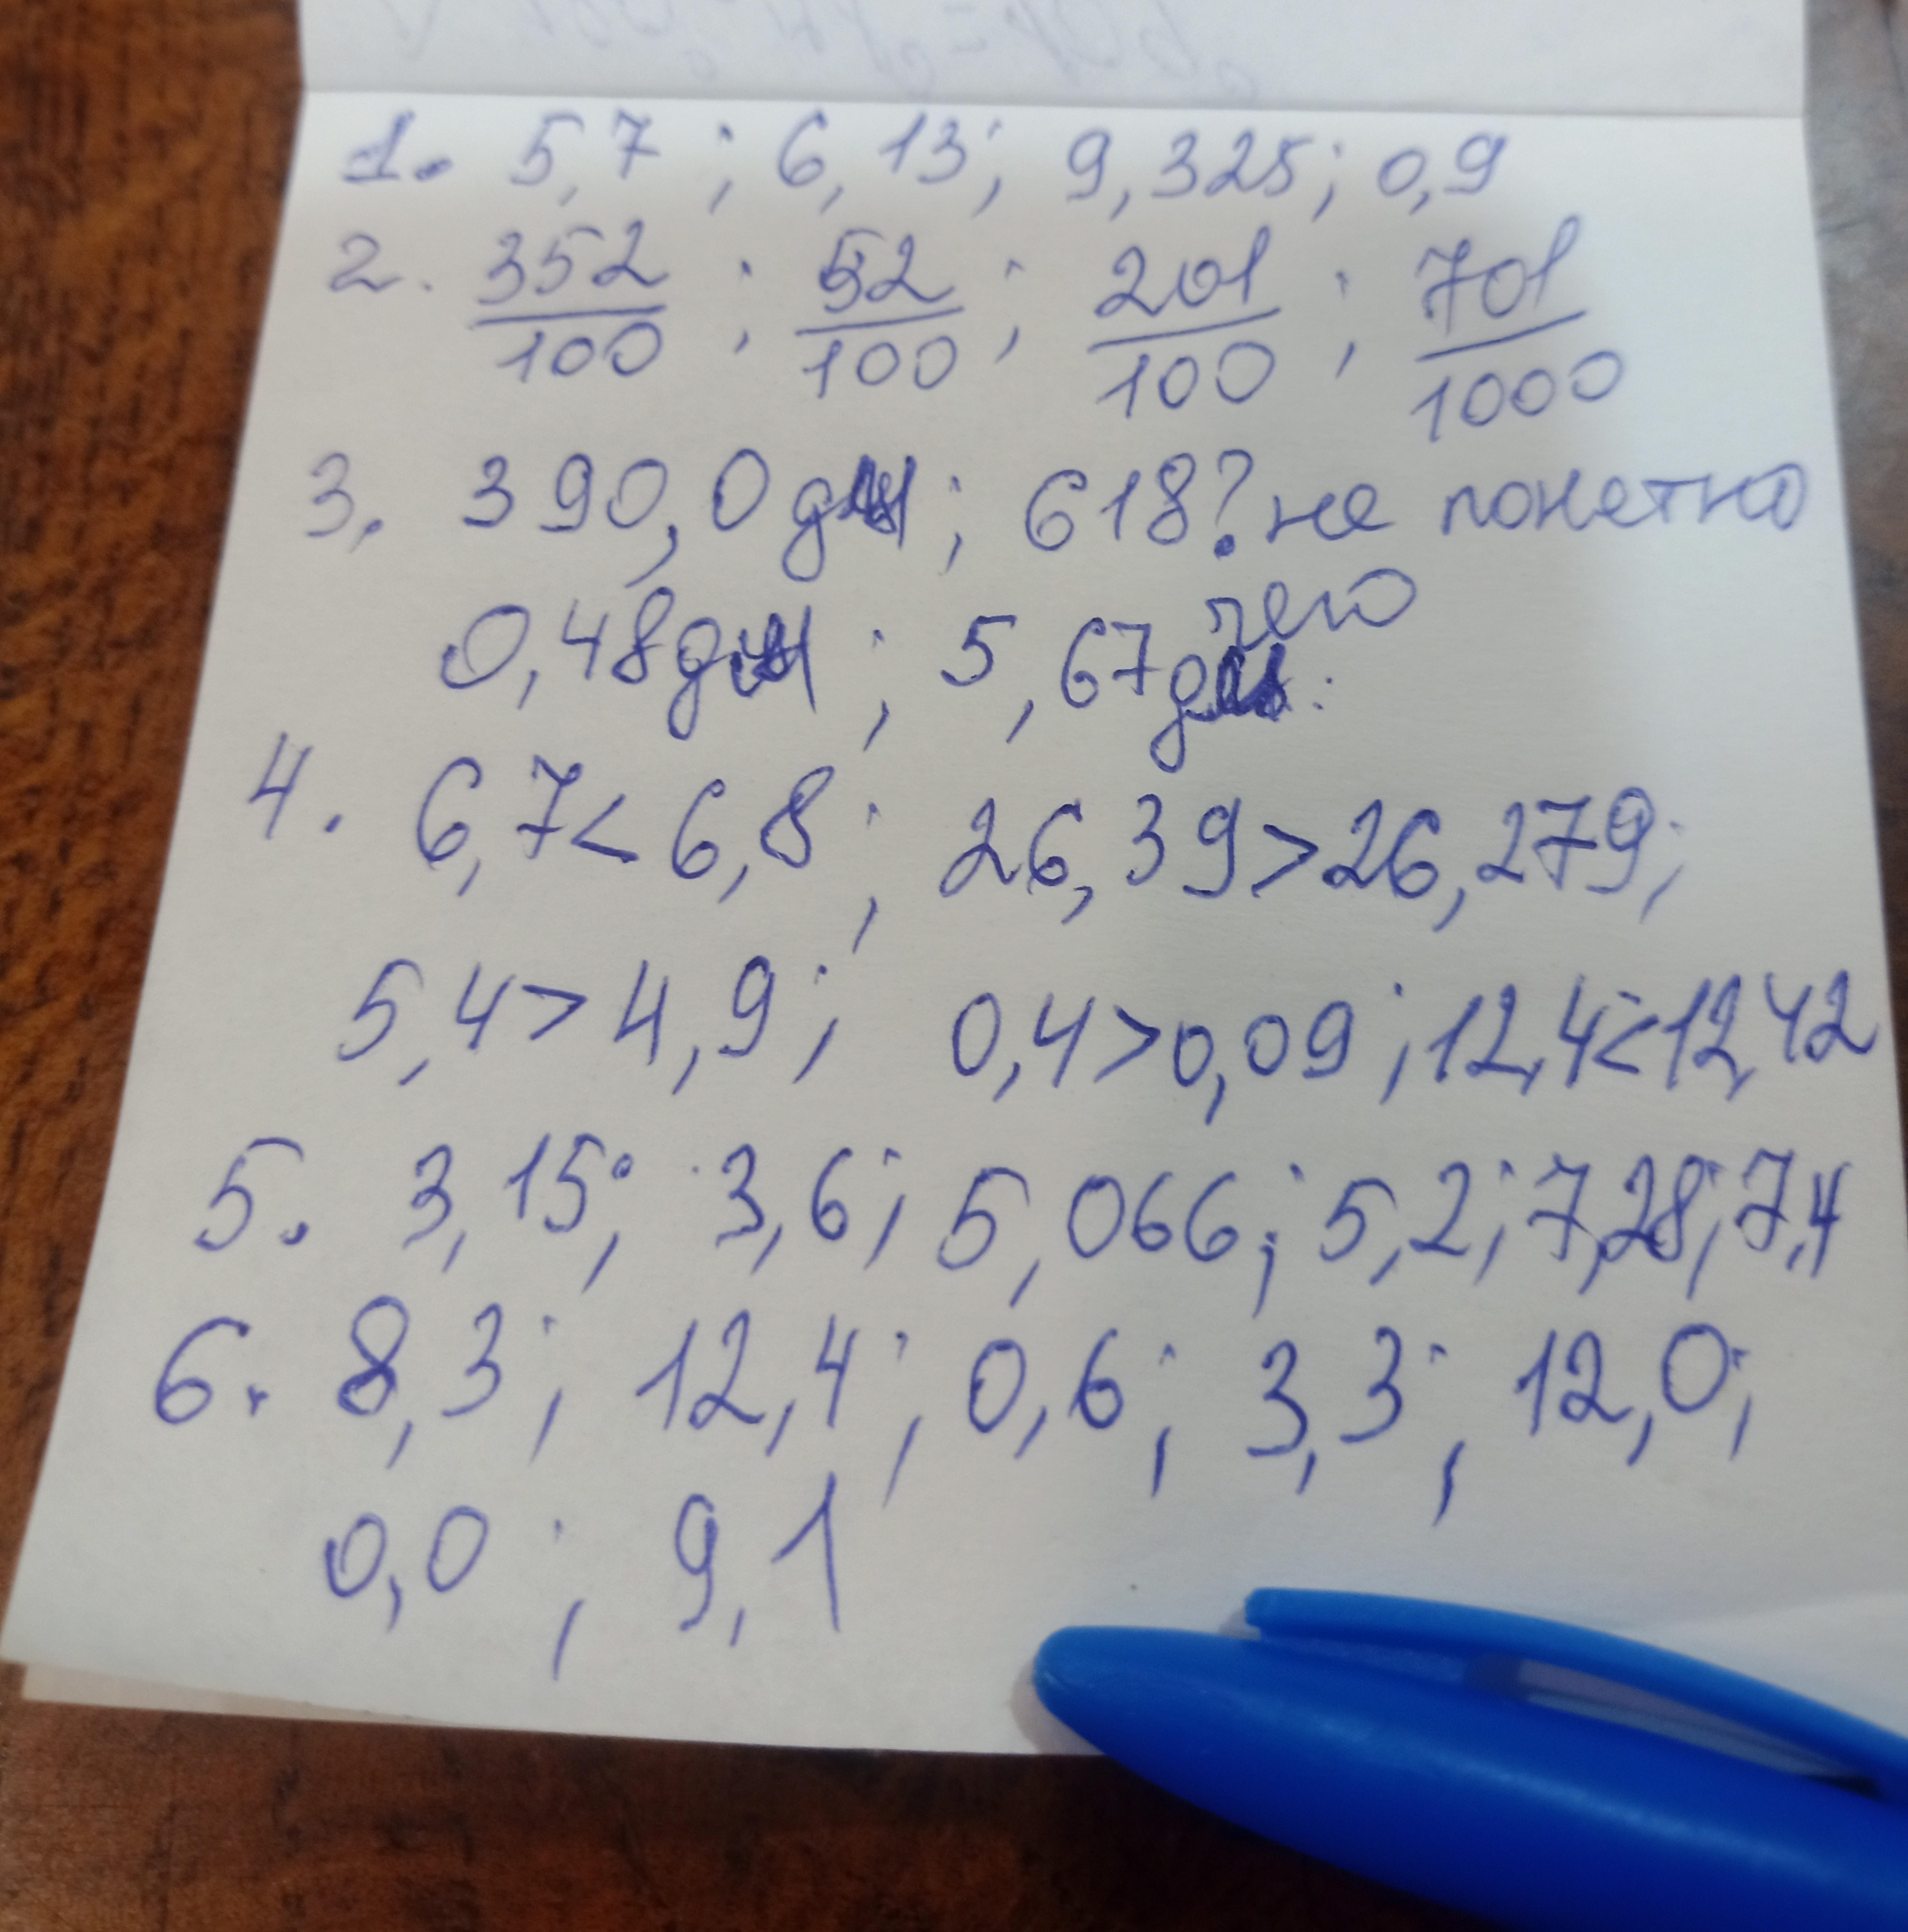 1. 5,7 ; 6,13 ; 9,325 ; 0,9
2. 352/100 ; 52/100 ; 201/100 ; 701/1000
3. 390,0 ; 618? не понетно
чего
0,48 ; 5,67
4. 6,7 < 6,8 ; 26,39 > 26,279 ;
5,4 > 4,9 ; 0,4 > 0,09 ; 12,4 < 12,42
5. 3,15 ; 3,6 ; 5,066 ; 5,2 ; 7,28 ; 7,4
6. 8,3 ; 12,4 ; 0,6 ; 3,3 ; 12,0 ;
0,0 ; 9,1